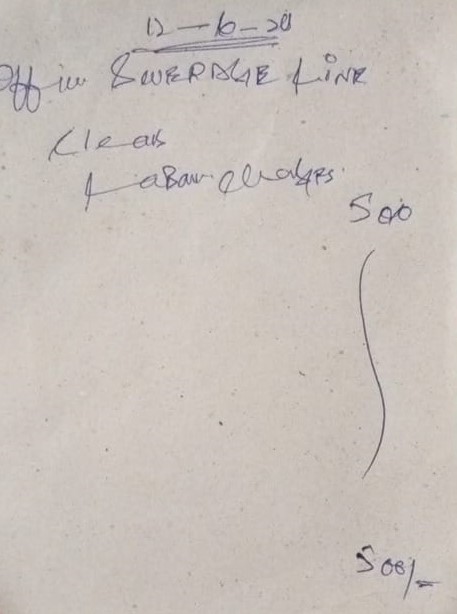 12-6-20
Office SWERAGE LiNE
Clear
Labour charges.
500
500/=